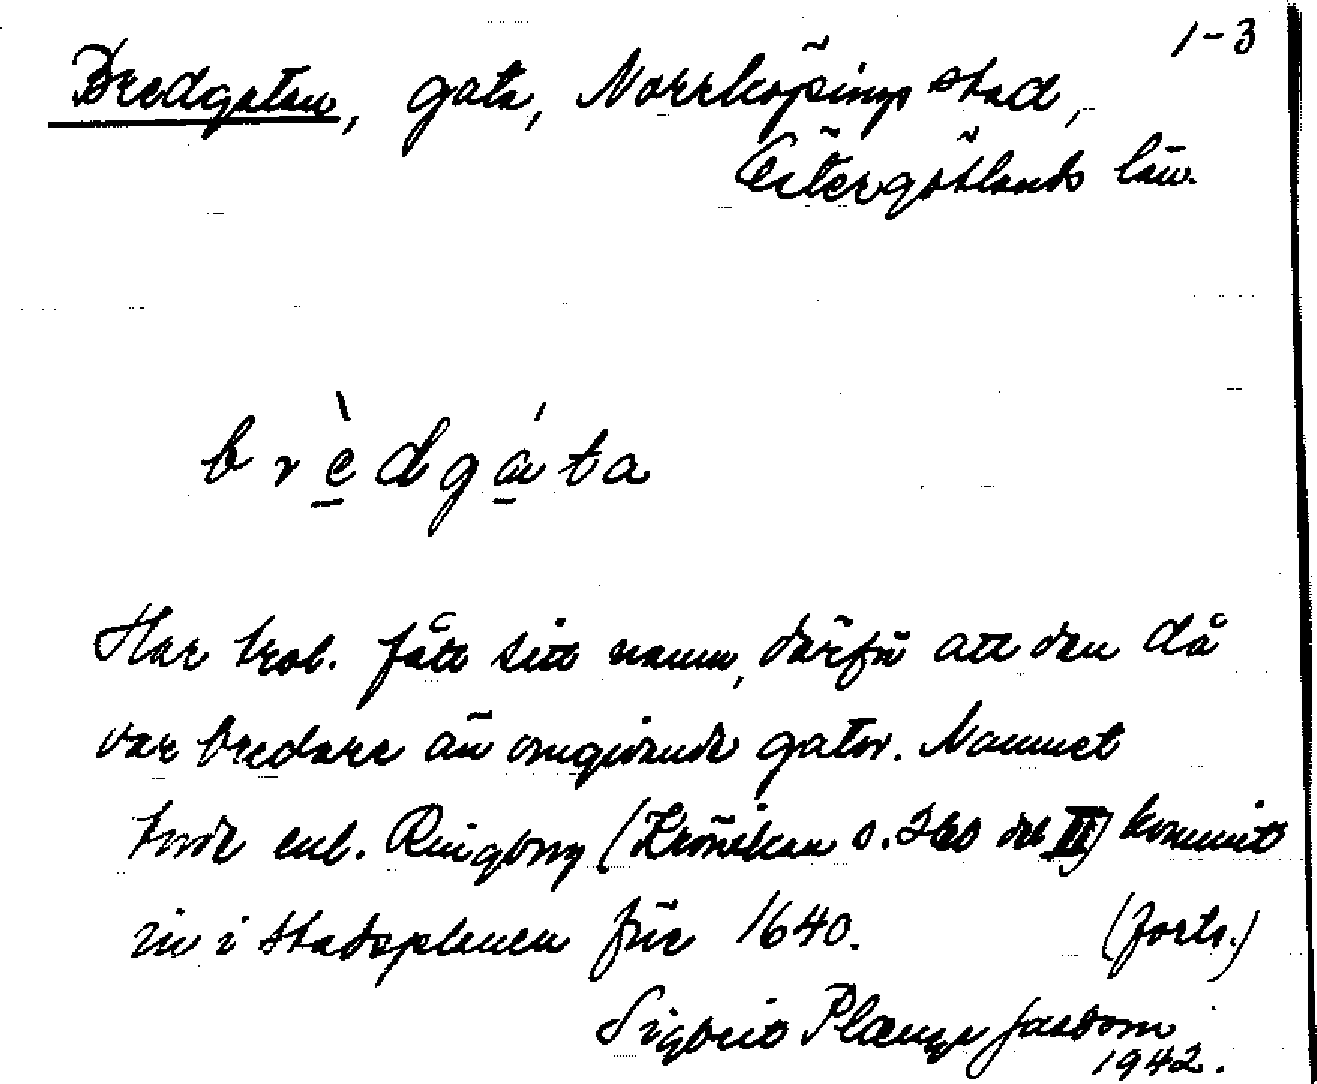 1-3
Bredgatan, gata, Norrköpings stad,
Östergötlands län.
brèdgáta
Har trol. fått sitt namn, därför att den då
var bredare än omgivande gator. Namnet
torde enl. Ringborg (Krönikan s. 260 del II) kommit
in i stadsplanen före 1640. (forts.)
Sigbrit Plænge Jacobson
1942.